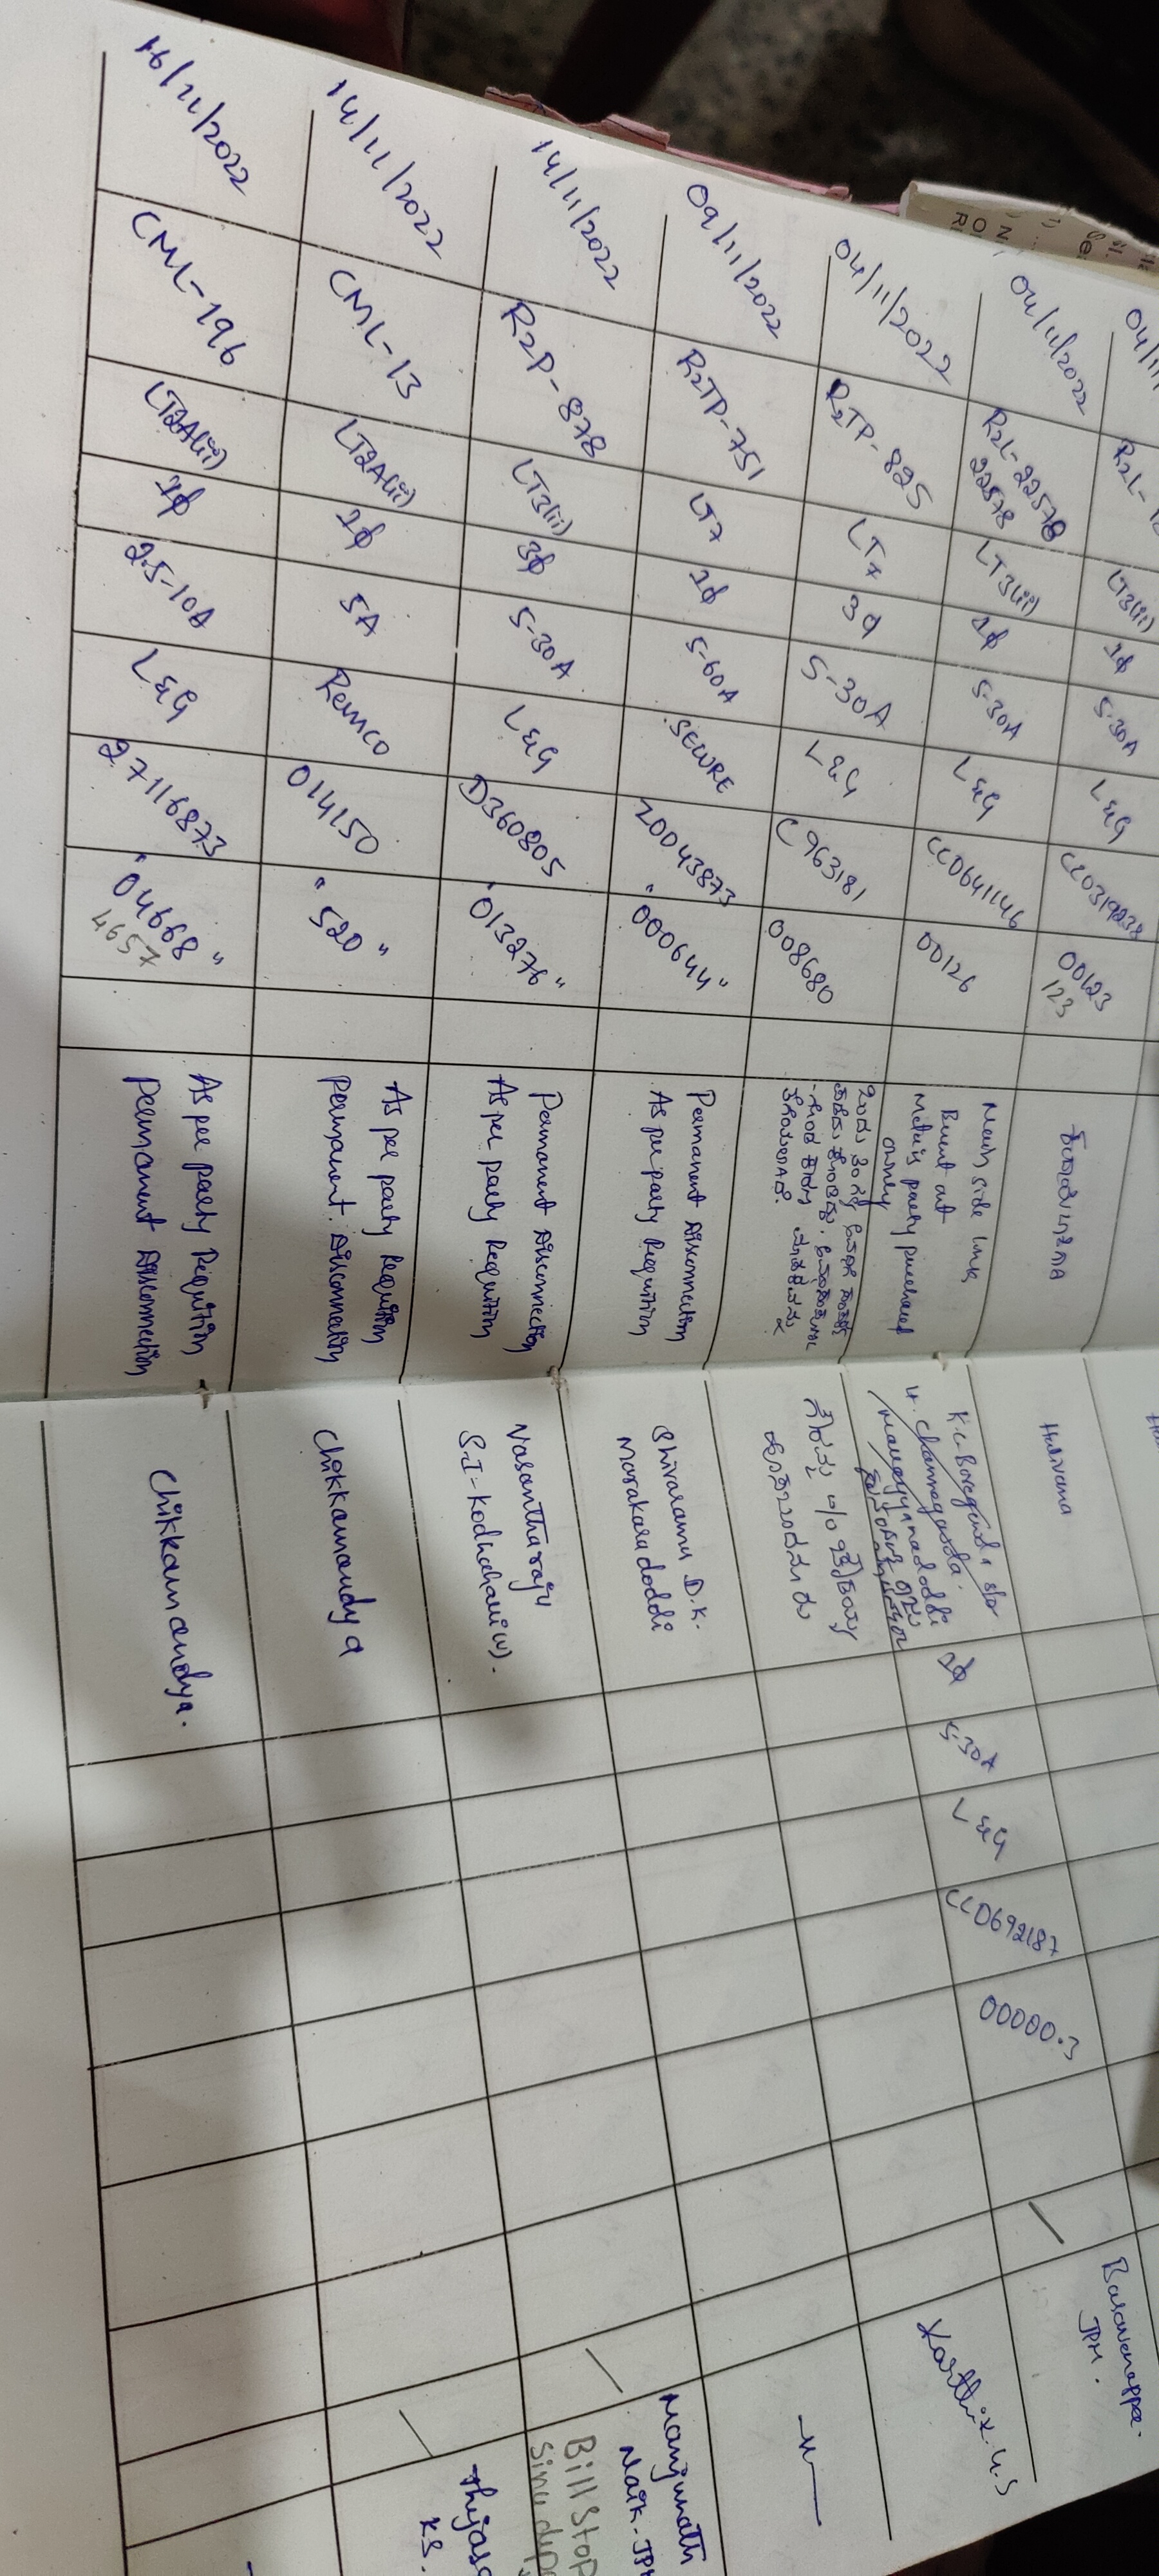 04/11
R2L-1
LT3(ii)
1φ
5-30A
L&G
CC0319238
00123
123
Hulivana
Basavarappa.
JPM.
04/11/2022
R2L-22578
22578
LT3(ii)
1φ
5-30A
L&G
CC0641146
00126
Main side link
Burnt out
Meter is party purchased
owner
K.C. Boregowda s/o
H. Channegowda.
Mangayyanadoddi
1φ
5-30A
L&G
CC0692187
00000.3
Karthik.U.S
04/11/2022
R2TP-825
LT7
3φ
5-30A
L&G
C963181
008680
—〃—
09/11/2022
R2TP-751
LT7
1φ
5-60A
SECURE
Z0043873
"000644"
Permanent Disconnection
As per party Requition
Shivaramu D.K.
Marakaradoddi
Manjunath
Naik-JPM
14/11/2022
R2P-878
LT3(ii)
3φ
5-30A
L&G
D360805
"013276"
Permanent Disconnection
As per party Requition
Vasantharaju
S.I-Kodhahalli(v).
Bill Stop
14/11/2022
CML-13
LT2A(ii)
1φ
5A
Remco
014150
"520"
As per party Requition
Permanent. Disconnection
Chikkamandya
K.S.
16/11/2022
CML-196
LT2A(ii)
1φ
2.5-10A
L&G
27116873
"04668"
4657
As per party Requition
Permanent Disconnection
Chikkamandya.